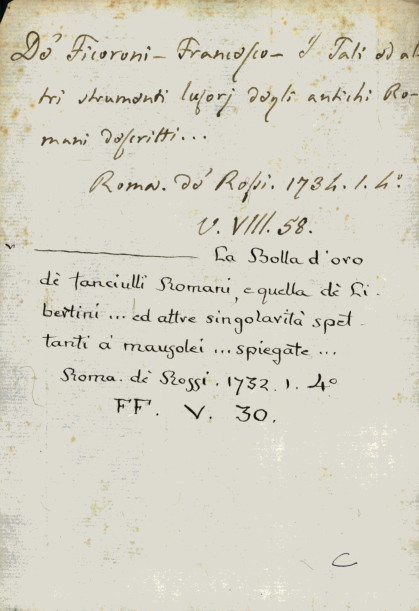 De' Ficoroni - Francesco - I Tali ed al
tri strumenti lusorj degli antichi Ro-
mani descritti...
Roma. de' Rossi. 1734. 1. 4°.
V. VIII. 58.
La Bolla d'oro
dè fanciulli Romani, e quella dè Li-
bertini ... ed altre singolarità spet-
tanti à mausolei ... spiegate ...
Roma. dè Rossi. 1732. 1. 4°
FF. V. 30.
C